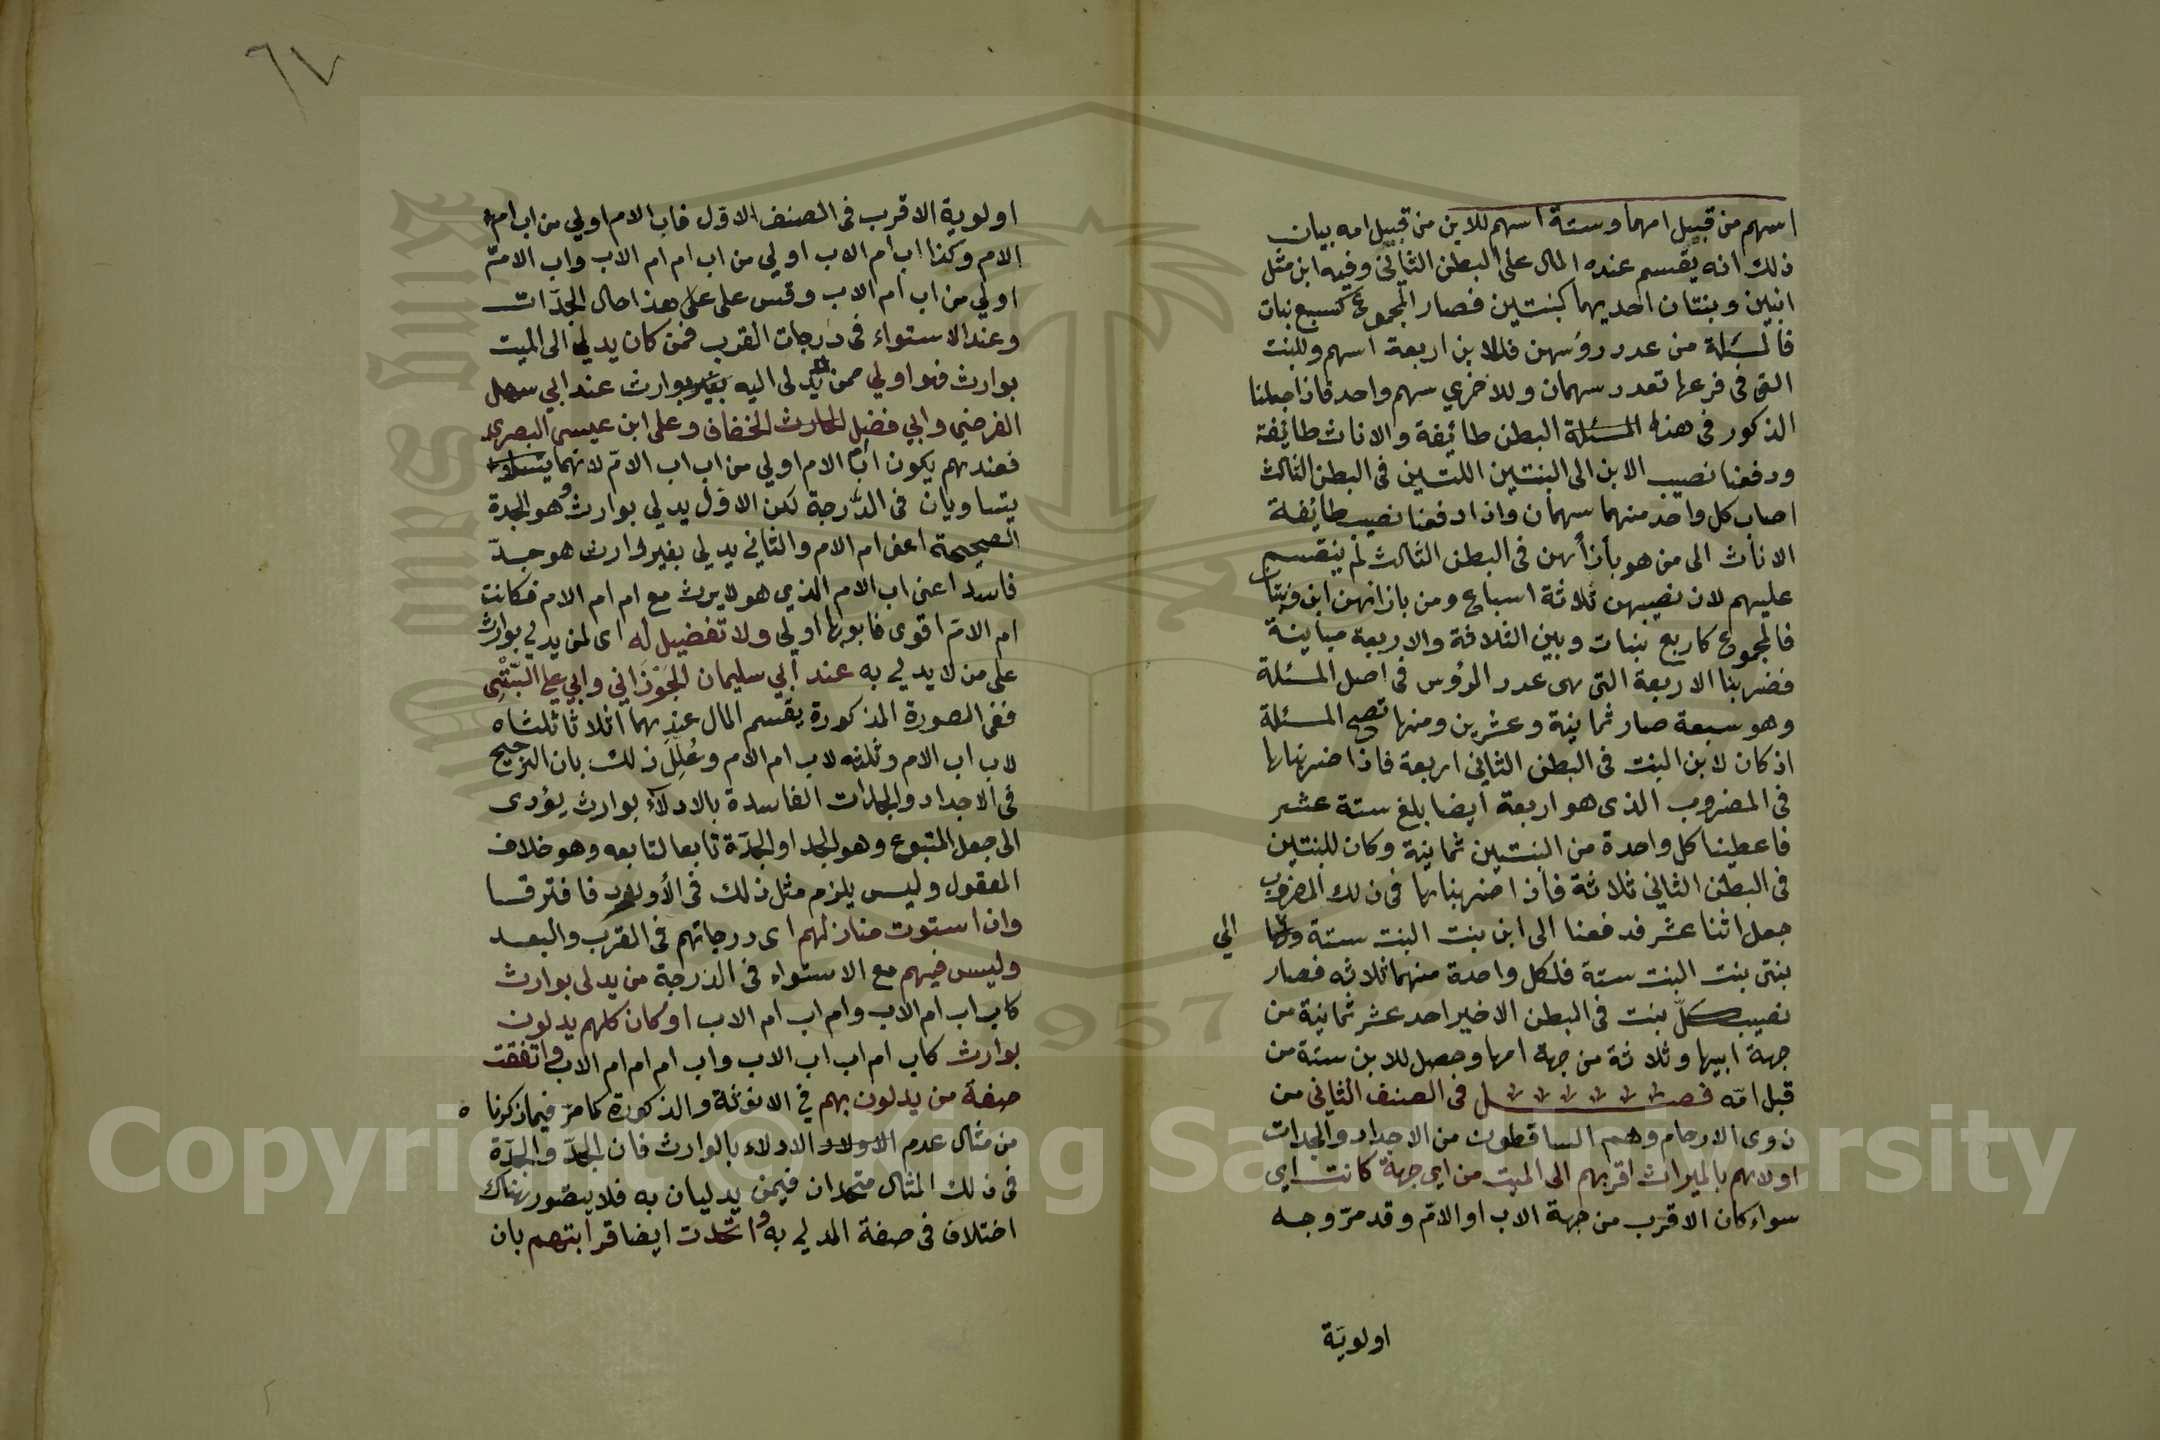 اسهم من قبيل امهما وستة اسهم للابن من قبيل امه بيان
ذلك انه يقسم عنده المال على البطن الثاني وفيه ابن مثل
ابنين وبنتان احديهما كبنتين فصار المجموع كسبع بنات
فالمسئلة من عدد رؤسهن فللابن اربعة اسهم وللبنت
التي في فرعها تعدد سهمان وللاخري سهم واحد فاذا جعلنا
الذكور في هذه المسئلة البطن طائيفة والاناث طائيفة
ودفعنا نصيب الابن الى البنتين اللتين في البطن الثالث
اصاب كل واحد منهما سهمان واذا دفعنا نصيب طائيفة
الاناث الى من هو بأزأ بهن في البطن الثالث لم ينقسم
عليهم لان نصيبهن ثلاثة اسباع ومن بازائهن ابن وبنتان
فالمجموع كاربع بنات وبين الثلاثة والاربعة مباينة
فضربنا الاربعة التي هى عدد الرؤس في اصل المسئلة
وهو سبعة صار ثمانية وعشرين ومنها تصح المسئلة
اذ كان لابن البنت في البطن الثاني اربعة فاذا ضربناها
في المضروب الذي هو اربعة ايضا بلغ ستة عشر
فاعطينا كل واحدة من البنتين ثمانية وكان للبنتين
في البطن الثاني ثلاثة فاذا ضربناها في ذلك المضروب
حصل اثنا عشر فدفعنا الى ابن بنت البنت ستة و
الي
بنتى بنت البنت ستة فلكل واحدة منهما ثلاثه فصار
نصيب كلّ بنت في البطن الاخير احد عشر ثمانية من
جهة ابيها وثلاثة من جهة امها وحصل للابن ستة من
قبل امّه فصـــل في الصنف الثاني من
ذوى الارحام وهم الساقطون من الاجداد والجدات
اولاهم بالميراث اقربهم الى الميت من اي جهة كانت اي
سواء كان الاقرب من جهة الاب او الامّ وقد مرّ وجه
اولويّة
٦٧
اولوية الاقرب في الصنف الاوّل فاب الام اولي من اب ام
الام وكذا اب ام الاب اولي من اب ام ام الاب واب الامّ
اولي من اب ام الاب وقس على على هذا حال الجدّات
وعند الاستواء في درجات القرب فمن كان يدلي الى الميت
بوارث فهو اولي ممن يدلى اليه بغير بوارث عند ابي سهل
الفرضي وابي فضل الحارث الخفاف وعلى ابن عيسى البصري
فعندهم يكون اب الام اولي من اب اب الامّ لانهما
يتساويان في الدّرجة لكن الاوّل يدلي بوارث وهو الجدة
الصحيحة اعني ام الام والثاني يدلي بغير وارث هو جدّ
فاسد اعني اب الام الذي هو لايرث مع ام ام الام فكانت
ام الامّ اقوى فابوها اولي ولا تفضيل له اى لمن يدلي بوارث
على من لا يدلي به عند أبي سليمان الجَوْزَاني وابي علي البّتْتِى
ففى الصورة المذكورة يقسم المال عندهما اثلاثا ثلثاه
لاب اب الام وثلثه لاب ام الام وعُلِّلَ ذلك بان الترجيح
في الاجداد والجدات الفاسدة بالادلآء بوارث يؤدى
الى جعل المتبوع وهو الجد او الجدّة تابعا لتابعه وهو خلاف
المعقول وليس يلزم مثل ذلك في الأولاد فافترقسا
وان استوت منازلهم اى درجاتهم في القرب والبعد
وليس فيهم مع الاستواء في الدرجة من يدلى بوارث
كاب اب ام الاب وام اب ام الاب او كان كلهم يدلون
بوارث كاب ام اب اب الاب واب ام ام ام الاب واتفقت
صفة من يدلون بهم في الانوثة والذكورة كما مرّ فيما ذكرنا ه
من مثال عدم الاولاد الادلاء بالوارث فان الجدّ والجدّة
في ذلك المثال متحدان فيمن يدليان به فلا يتصّور هناك
اختلاف في صفة المدلي به واتحدت ايضا قرابتهم بان
Copyright © King Saud University
1957